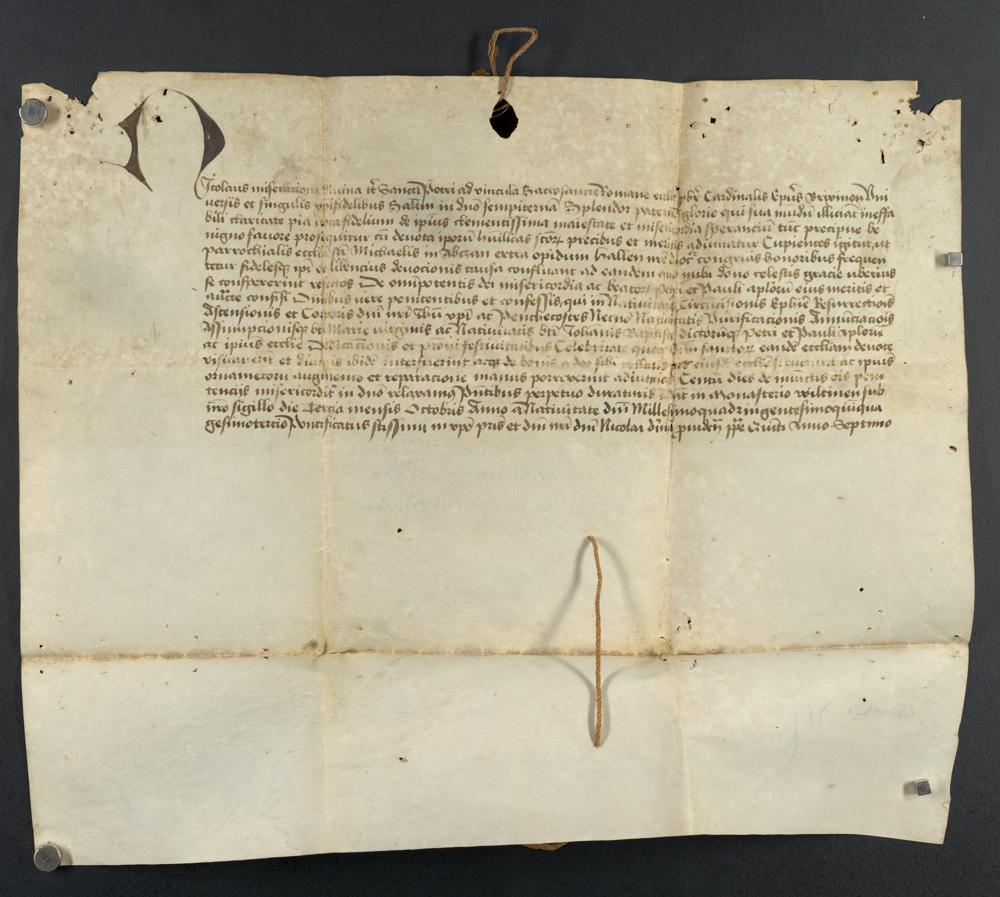 Nicolaus miseratione divina tt Sancti Petri ad vincula Sacrosancte Romane eccle pbr Cardinalis Epus Brixinen Uni
versis et singulis xpifidelibus Saltm in dno sempiternam Splendor paterne glorie qui sua mundu illuciat ineffa
bili claritate pia vota fidelium de ipius clementissima maiestate et misericordia sperancium tuc precipue be
nigno favore prosequitur cu devota iporum huilitas scorz precibus et meritis adiuvatur Cupientes igitur ut
parrochialis ecclia sti Michaelis in Absan extra opidum Hallen nre dioc congruis honoribus frequen
tetur fidelesqz ipi eo libencius devocionis causa confluant ad eandem quo inibi dono celestis gracie uberius
se conspexerint refectos De omipotentis dei misericordia ac beator Petri et Pauli aplorum eius meritis et
aucte confisi Omibus vere penitentibus et confessis qui in Nativitatis Circucisionis Ephie Resurrectiois
Ascensionis et Corporis dni nri Ihu xpi ac Penthecostes Necno Nativitatis Purificacionis Annuciaciois
Assumpcionisqz bte Marie virginis ac Nativitatis bti Iohannis Baptiste dictorumqz Petri et Pauli aplorum
ac ipius ecclie Dedicacionis et proni festivitatibus Celebritate quoqz Oim sanctorz eande eccliam devote
visitaverint et divinis ibide interfuerint acqz de bonis a deo sibi collatis structura ac ipius
ornamentoru augmento et reparacione manus porrexerint adiutrices Centu dies de iniuctis eis peni
tenciis misericorditer in dno relaxamus Pntibus perpetuo duraturis Dat in Monasterio Wiltinen sub
nro sigillo die Tercia mensis Octobris Anno a Nativitate dni Millesimoquadringentesimoquiqua
gesimotercio Pontificatus stissimi in xpo pris et dni nri dni Nicolai divina providen ppe Quinti Anno Septimo